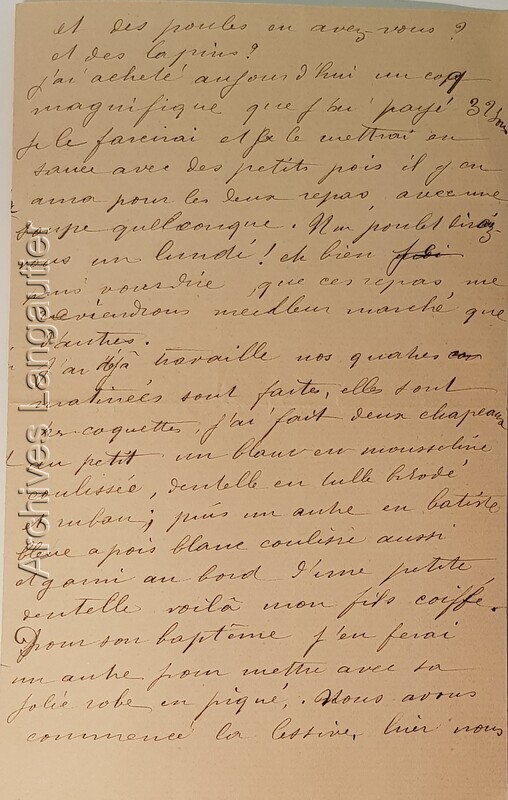 et des poules en avez-vous?
et des lapins?
j'ai acheté aujourd'hui un coq
magnifique que j'ai payé 32 sous
Je le farcirai et je le mettrai en
sauce avec des petits pois il y en
aura pour les deux repas avec une
soupe quelconque. Un poulet direz
vous un lundi! eh bien
vous dire que ces repas me
reviendrons meilleur marché que
d'autres.
J'ai déjà travaille nos quatres
matinées sont faites, elles sont
très coquettes, j'ai fait deux chapeaux
au petit un blanc en mousseline
coulissée, dentelle en tulle brodé
& ruban; puis un autre en batiste
bleue a pois blanc coulissé aussi
et garni au bord d'une petite
dentelle voilà mon fils coiffé.
Pour son baptème j'en ferai
un autre pour mettre avec sa
jolie robe en piqué, Nous avons
commencé la lessive, hier nous
Archives Langautier